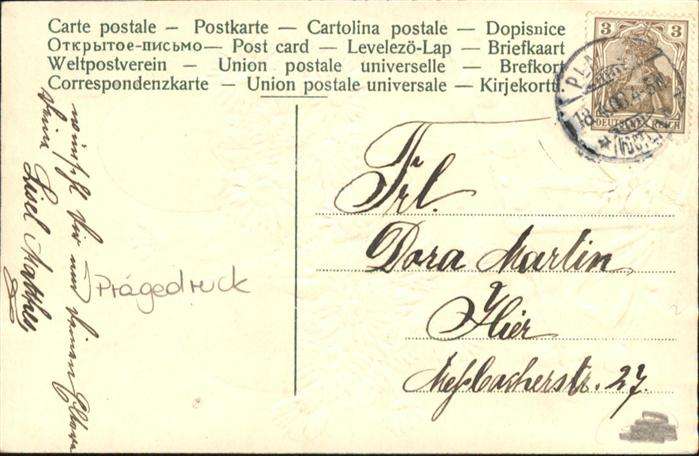 Carte postale – Postkarte – Cartolina postale – Dopisnice
Открытое-письмо – Post card – Levelezö-Lap – Briefkaart
Weltpostverein – Union postale universelle – Brefkort
Correspondenzkarte – Union postale universale – Kirjekortti
3 3
DEUTSCHES REICH
Frl.
Dora Martin
Hier
Meßbacherstr. 27.
wünscht Dir und Deinen Eltern
Deine Liesel Matthes
Prägedruck